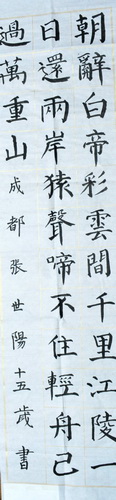 朝辭白帝彩雲間千里江陵一
日還兩岸猿聲啼不住輕舟已
過萬重山成都張世陽十五歲書